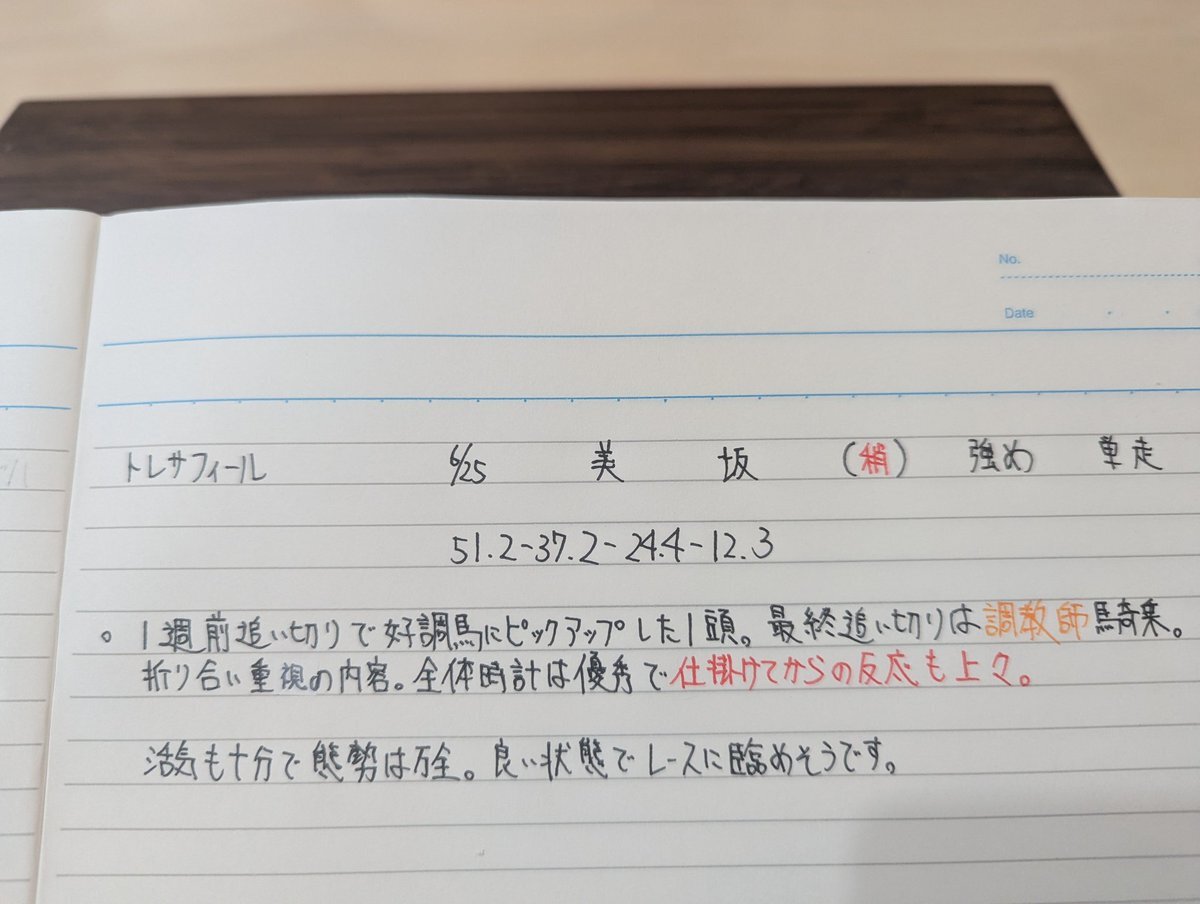 No.
Date
トレサフィール 6/25 美 坂 (稍) 強め 単走
51.2-37.2-24.4-12.3
。1週前追い切りで好調馬にピックアップした1頭。最終追い切りは調教師騎乗。
折り合い重視の内容。全体時計は優秀で仕掛けてからの反応も上々。
活気も十分で態勢は万全。良い状態でレースに臨めそうです。